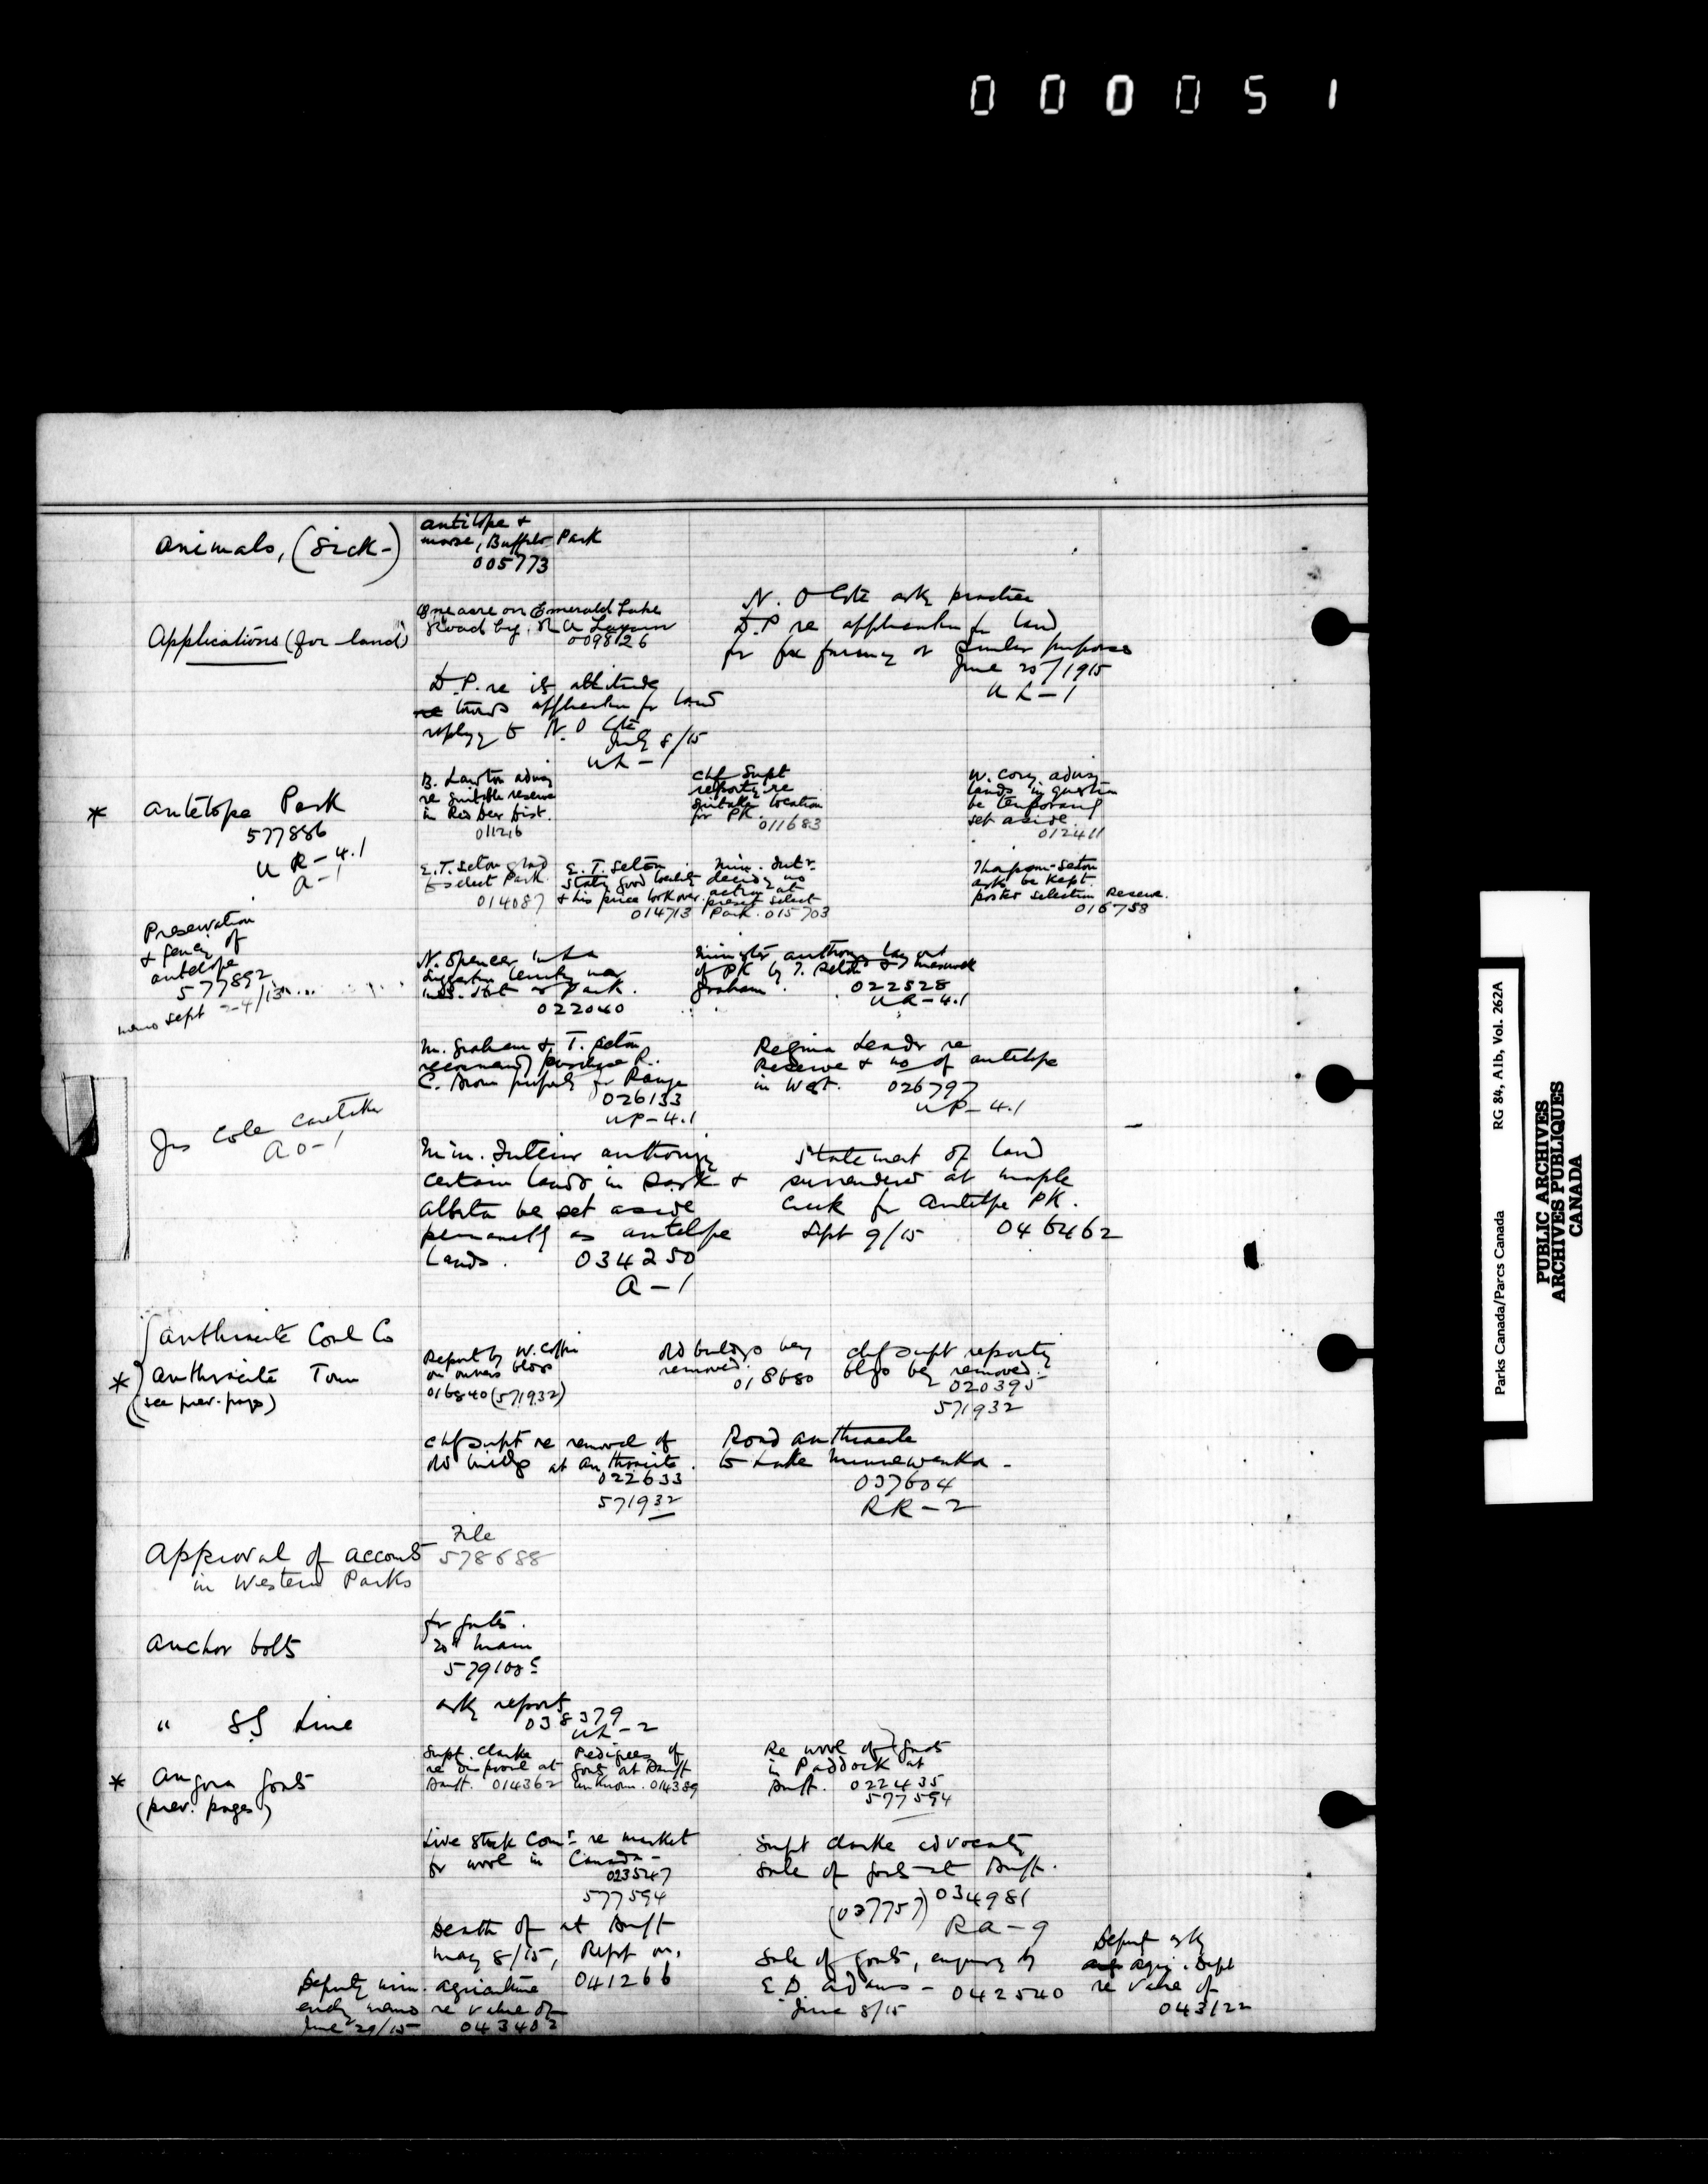 000051
Animals, (Sick-)
antilope &
moose, Buffalo Park
005773
Applications (for land)
One acre on Emerald Lake
Road by R A
009826
N. O Cte ask practice
D.P re application for land
for fox farming or similar purposes
June 25/1915
U L-1
D.P. re its attitude
towards application for land
replyg to N. O Cte
July 8/15
UL-1
* Antelope Park
577886
U R-4.1
A-1
B. Lawton advisg
re suitable reserve
in Red Deer Dist.
011216
Chf Supt
reportg re
suitable location
for PK.
011683
W. Cory advisg
lands in question
be temporarily
set aside.
012411
E.T. Seton glad
to select Park
014087
E. T. Seton
statg good locality
& his price look over
014713
Min. Intr.
decidg no
action at
present select
Park. 015703
Thompson-Seton
asks be kept
posted selection Reserve.
016758
Preservation
& fencg of
antelope
577892
memo Sept 24/13
N. Spencer
Suggestion locality near
Park.
022040
Minister authorizg lay out
of PK by T. Seton & Maxwell
Graham.
022528
UR-4.1
M. Graham & T. Seton
recommendg purchase R.
C. property for Range
026133
UP-4.1
Regina Leader re
Reserve & no of antelope
in West. 026797
UP-4.1
Jas Cole caretaker
A O-1
Min. Interior authorizg
certain lands in Sask &
Alberta be set aside
permanently as antelope
Lands. 034250
A-1
Statement of land
surrendered at Maple
Creek for Antelope PK.
Sept 9/15 046462
Anthracite Coal Co
* Anthracite Town
(see prev. page)
Report by W. Coffin
on owners bldgs
016840 (571932)
Old buildgs beg
removed.
018680
Chf Supt reportg
bldgs beg removed.
020395
571932
Chf Supt re removal of
old buildgs at Anthracite.
022633
571932
Road Anthracite
to Lake Minnewanka -
037604
RR-2
Approval of accounts
in Western Parks
File
578688
Anchor bolts
for gates.
20" main
579108
" SS Line
ask report
038379
UL-2
* Angora goats
(prev. pages)
Supt. Clarke
re disposal at
Banff. 014362
Pedigrees of
goats at Banff
unknown. 014389
Re wool of goats
in Paddock at
Banff. 022435
577594
Live Stock Comr. re market
for wool in Canada -
023547
577594
Supt Clarke advocatg
sale of goats at Banff.
(037757) 034981
RA-9
Death of at Banff
May 8/15, Rept on.
041266
Sale of goats, enquiry by
E D. Adams - 042540
June 8/15
Deputy askg
Agri. Dept
re value of
043122
Deputy Min. Agriculture
encg memo re value of
June 29/15 043402
Parks Canada/Parcs Canada RG 84, A1b, Vol. 262A
PUBLIC ARCHIVES
ARCHIVES PUBLIQUES
CANADA